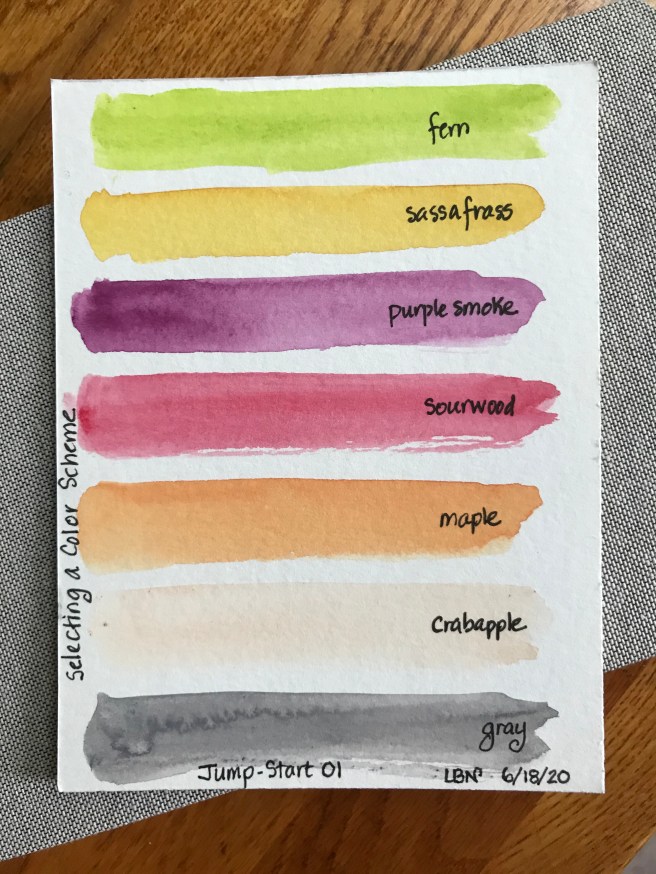 fern
sassafrass
purple smoke
sourwood
maple
Crabapple
gray
Selecting a Color Scheme
Jump-Start 01
6/18/20